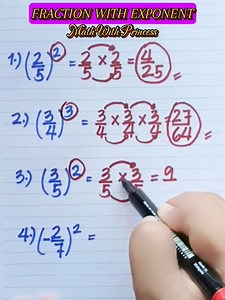 FRACTION WITH EXPONENT
Math With Princess
1.) (2/5)² = 2/5 × 2/5 = 4/25 =
2.) (3/4)³ = 3/4 × 3/4 × 3/4 = 27/64 =
3.) (3/5)² = 3/5 × 3/5 = 9
4.) (-2/7)² =